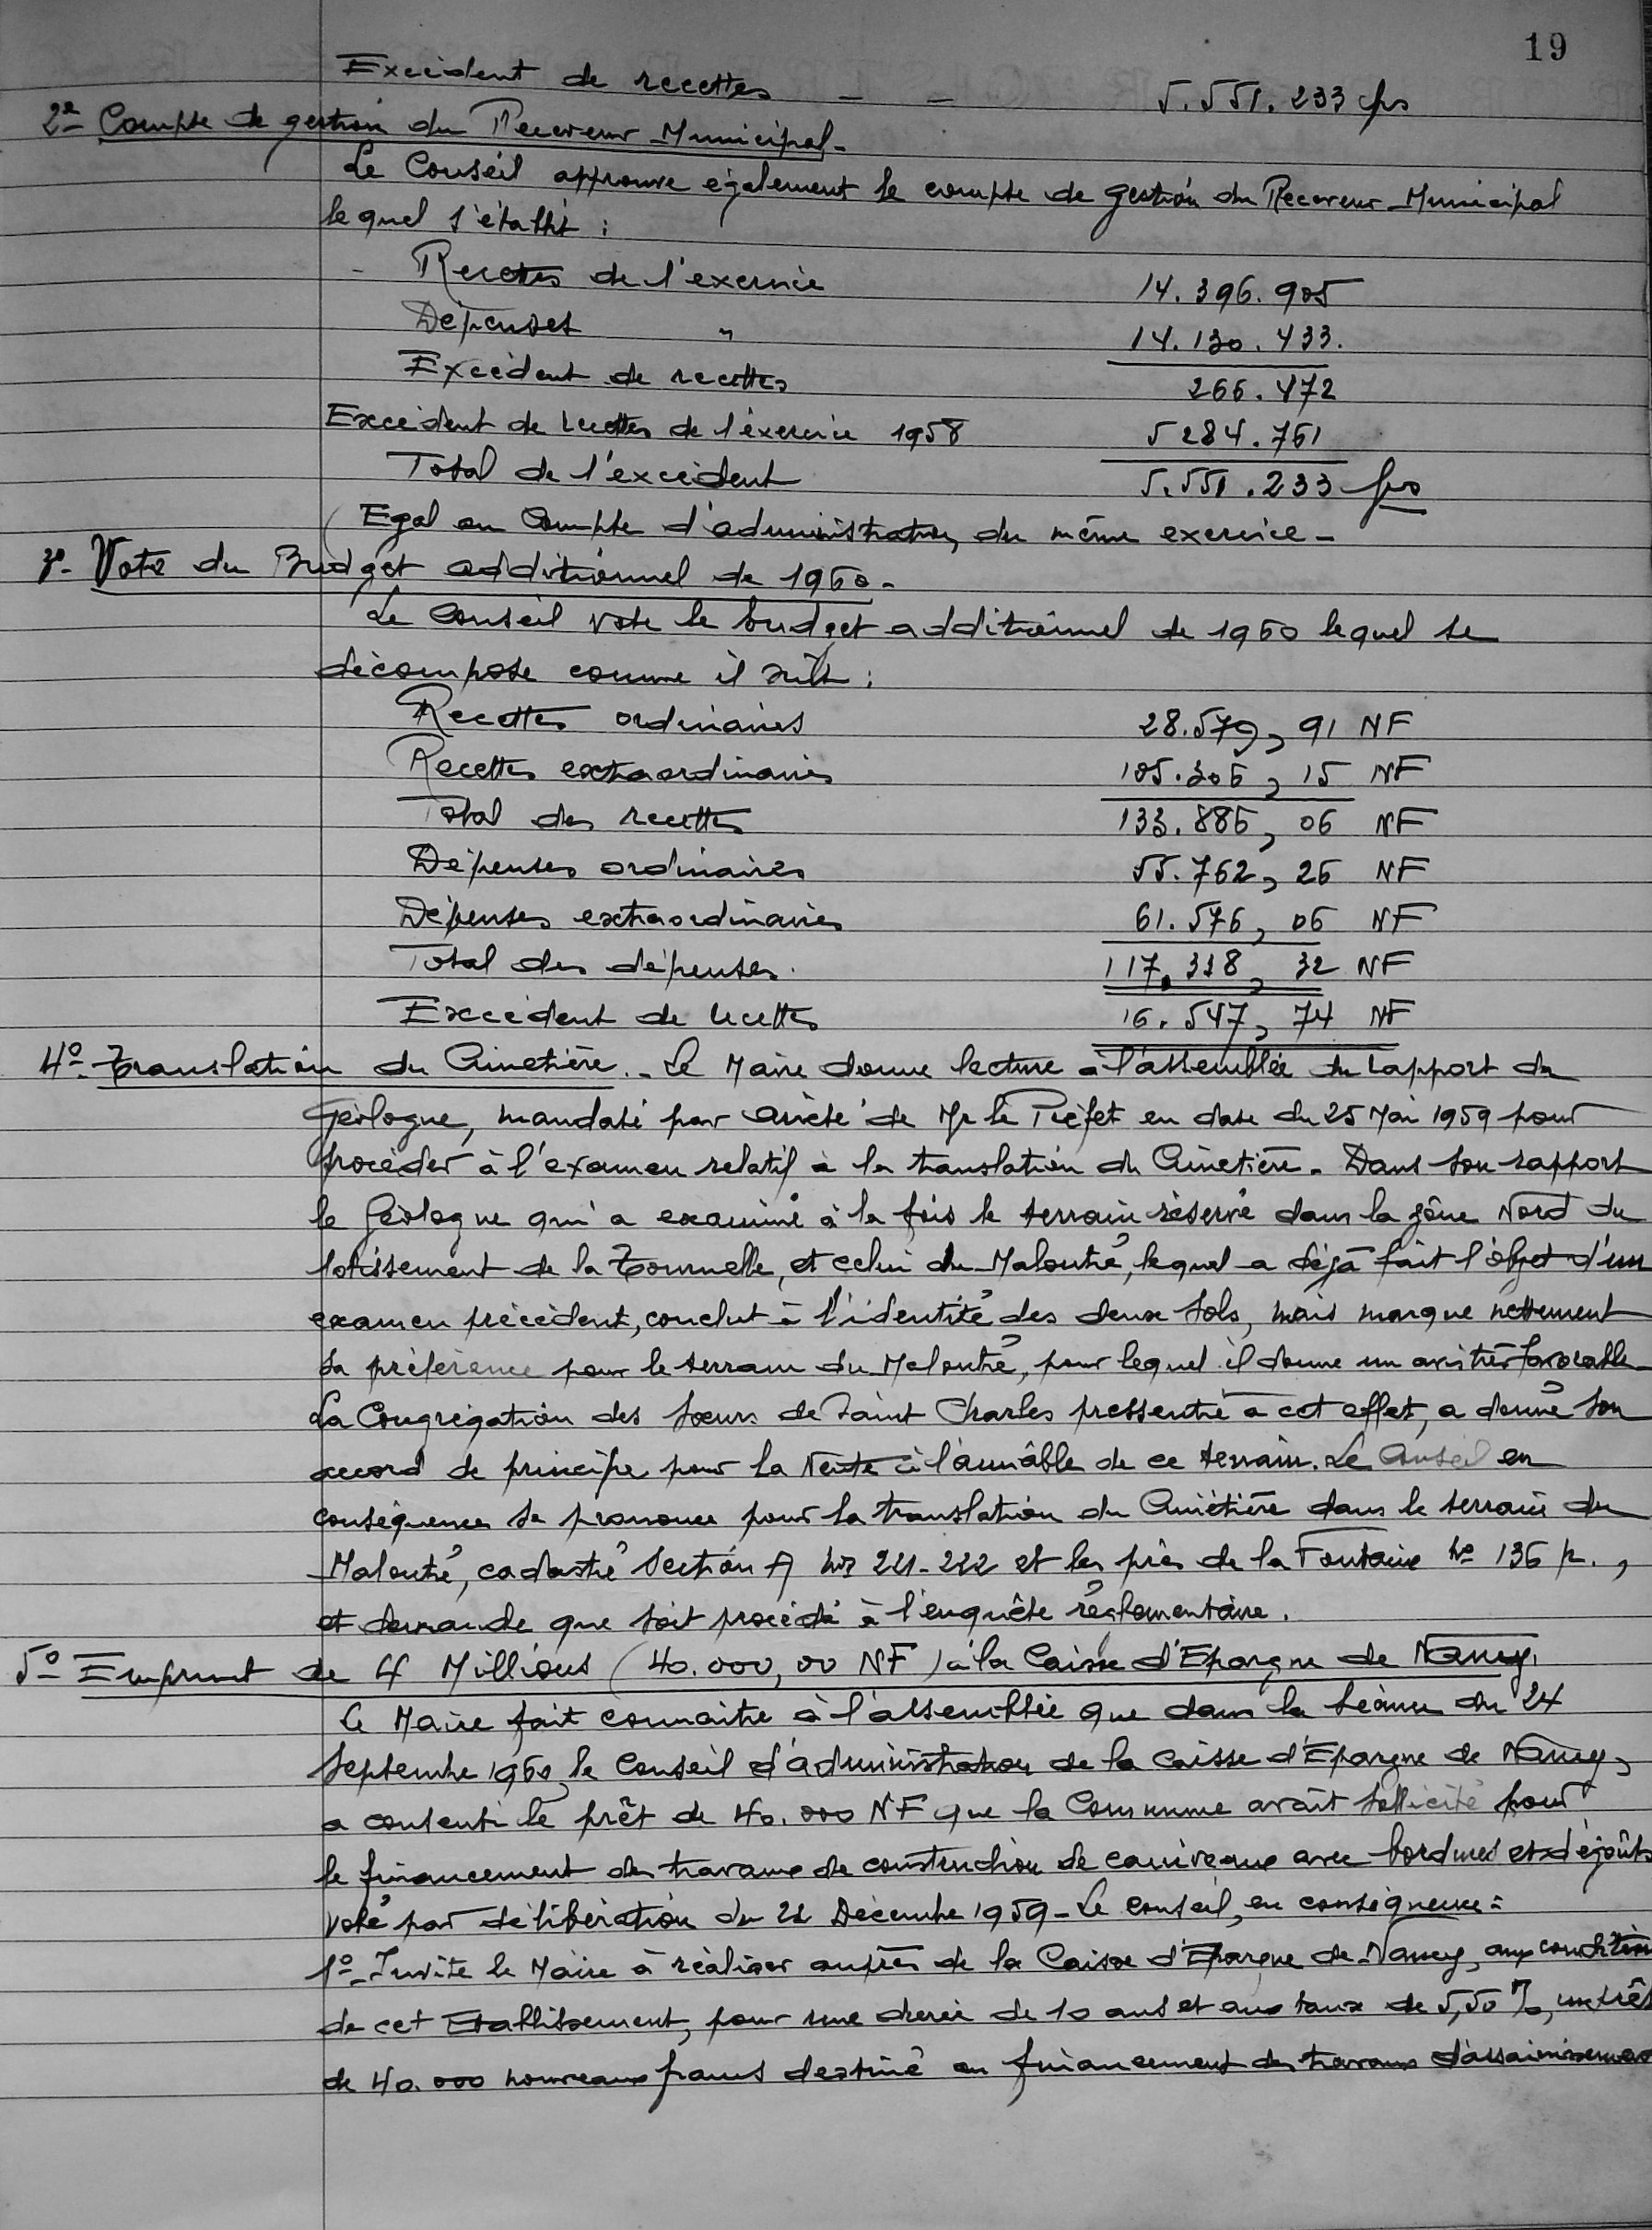 19
Excédent de recettes — — 5.551.233 frs
2e- Compte de gestion du Receveur Municipal-
Le Conseil approuve également le compte de gestion du Receveur Municipal
lequel s'établit :
- Recettes de l'exercice 14.396.905
Dépenses " 14.130.433.
Excédent de recettes 266.472
Excédent de recettes de l'éxercice 1958 5 284.761
Total de l'excédent 5.551.233 frs
Egal au Compte d'administration du même exercice-
3°- Vote du Budget additionnel de 1960-
Le Conseil vote le budget additionnel de 1960 lequel se
décompose comme il suit :
Recettes ordinaires 28.579, 91 NF
Recettes extraordinaires 105.306, 15 NF
Total des recettes 133.886, 06 NF
Dépenses ordinaires 55.762, 26 NF
Dépenses extraordinaires 61.576, 06 NF
Total des dépenses. 117.338, 32 NF
Excédent de recettes 16.547, 74 NF
4°- Translation du Cimetière.- Le Maire donne lecture à l'assemblée du rapport du
Géologue, mandaté par arrêté de Mr le Préfet en date du 25 Mai 1959 pour
procéder à l'examen relatif à la translation du Cimetière. Dans son rapport
le Géologue qui a examiné à la fois le terrain réservé dans la zône Nord du
lotissement de la Tournelle, et celui du Maloutré, lequel a déjà fait l'objet d'un
examen précédent, conclut à l'identité des deux sols, mais marque nettement
sa préférence pour le terrain du Maloutré, pour lequel il donne un avis très favorable-
La Congrégation des Soeurs de Saint Charles pressentie à cet effet, a donné son
accord de principe pour la vente à l'amiâble de ce terrain. Le Conseil en
conséquence se prononce pour la translation du Cimétière dans le terrain du
Maloutré, cadastré Section A nos 221-222 et les prés de la Fontaine no 136 p.,
et demande que soit procédé à l'enquête réglementaire.
5°- Emprunt de 4 Millions (40.000,00 NF) à la Caisse d'Epargne de Nancy.
Le Maire fait connaitre à l'assemblée que dans la séance du 24
Septembre 1960, le Conseil d'administration de la Caisse d'Epargne de Nancy,
a consenti le prêt de 40.000 NF que la Commune avait sollicité pour
le financement des travaux de construction de caniveaux avec bordures et d'égoûts
voté par délibération du 22 Décembre 1959- Le Conseil, en conséquence :
1°- Invite le Maire à réaliser auprès de la Caisse d'Epargne de Nancy, aux conditions
de cet Etablissement, pour une durée de 10 ans et aux taux de 5,50 %, un prêt
de 40.000 nouveaux francs destiné au financement des travaux d'assainissement